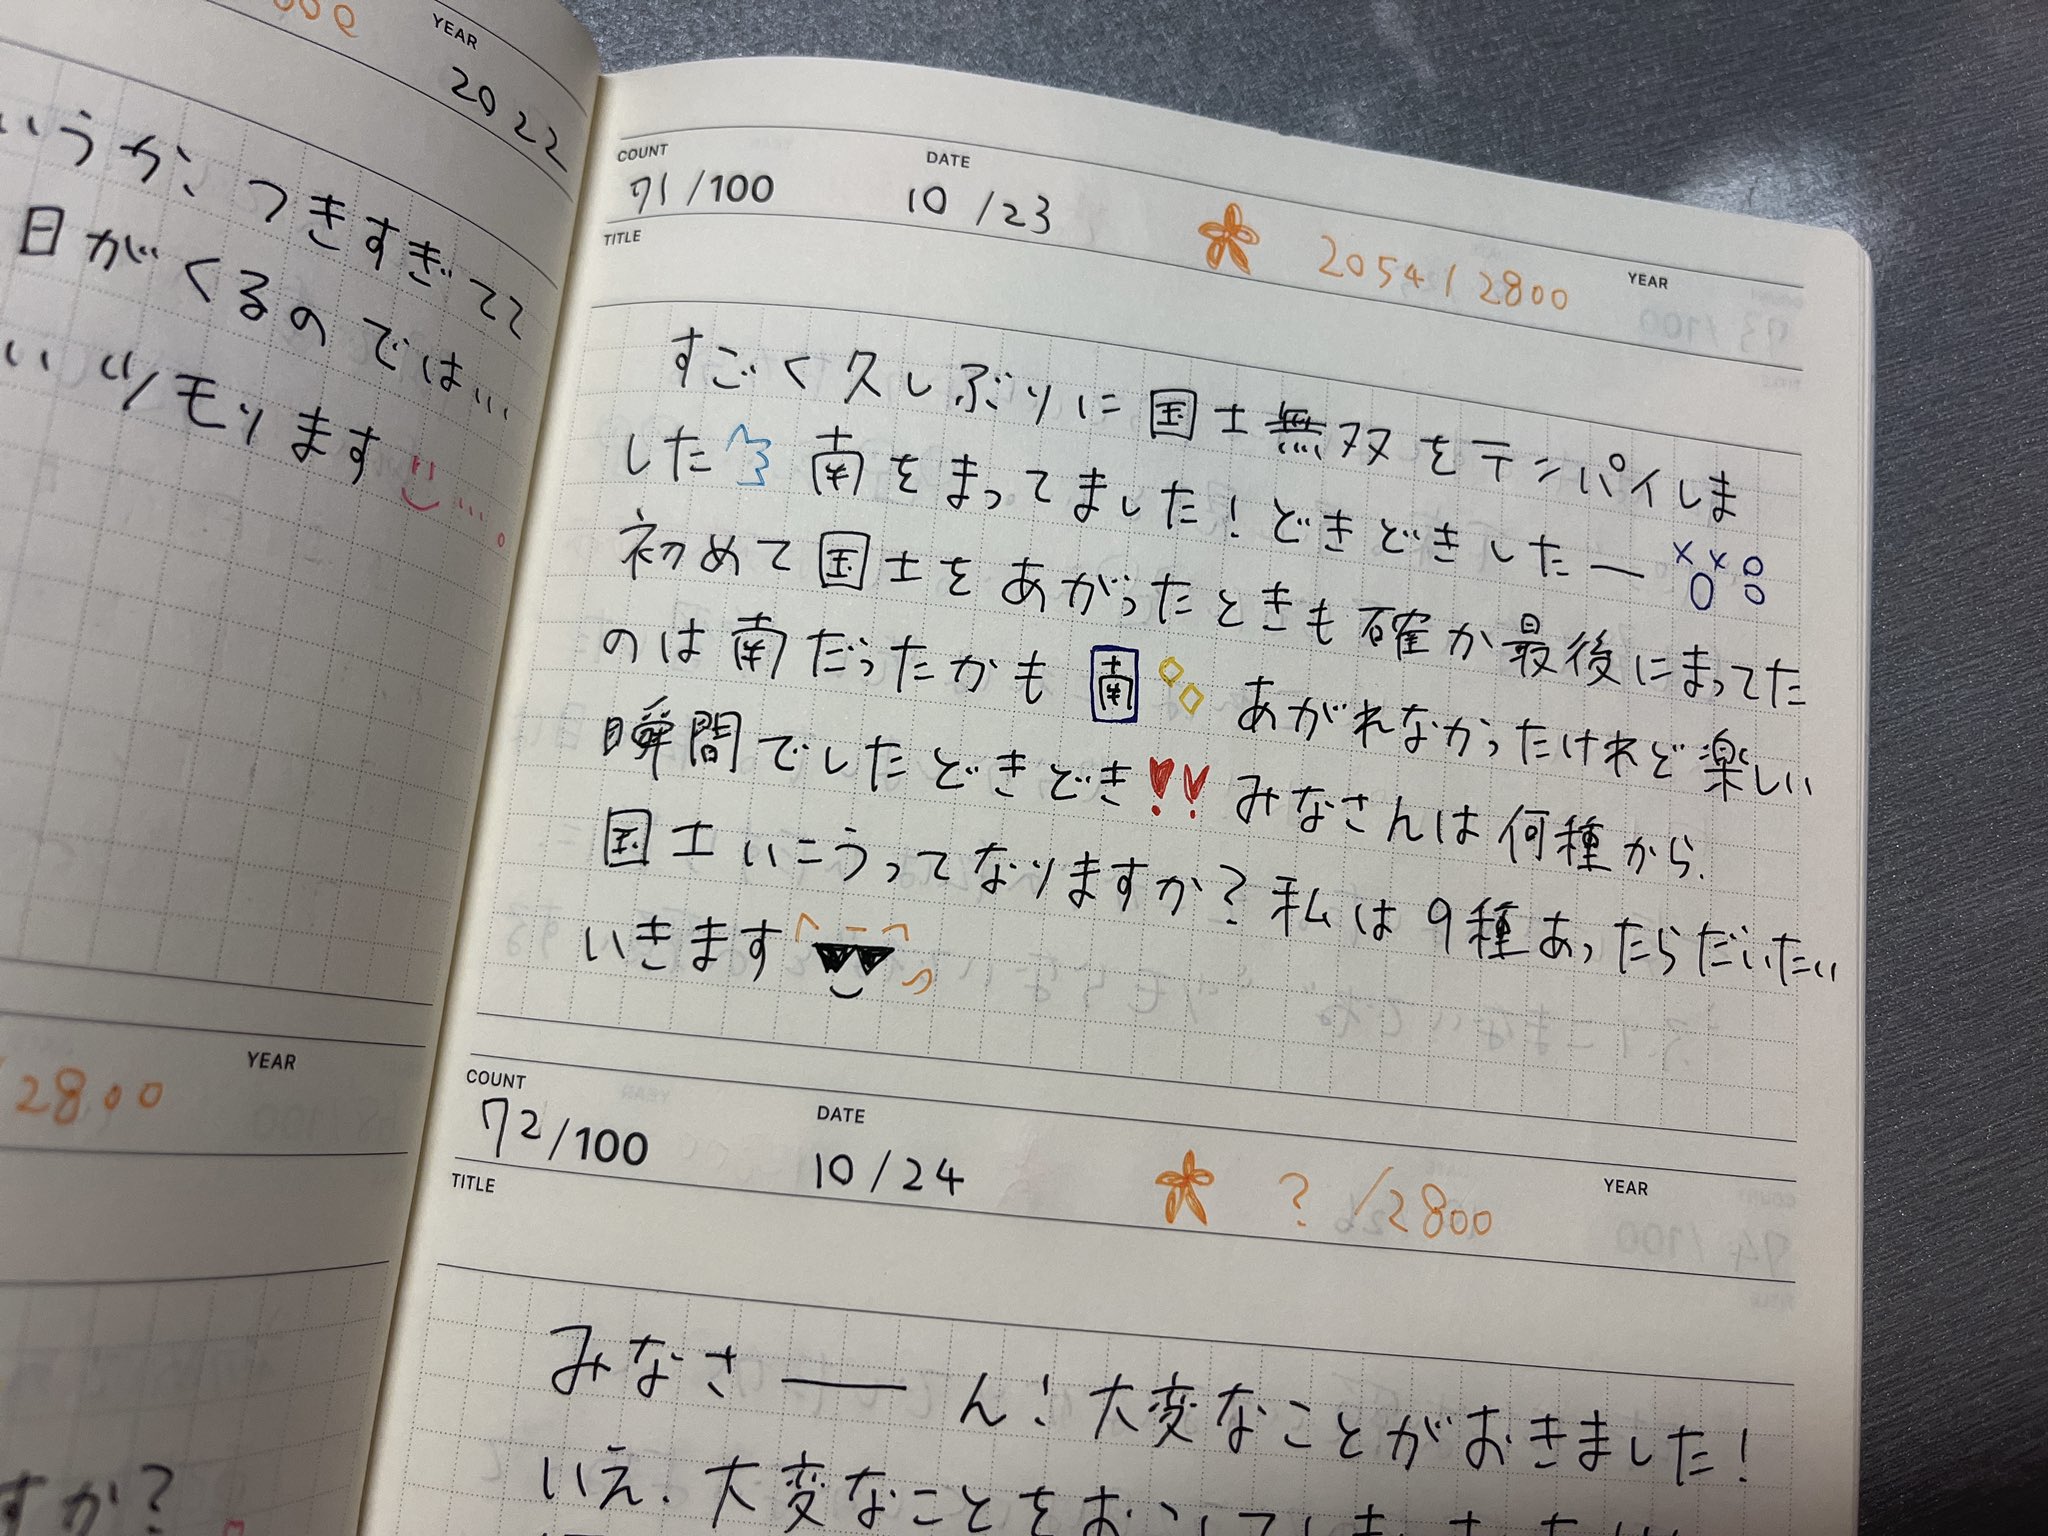 YEAR
2022
いうか、つきすぎてて
日がくるのでは…
いツモります
COUNT
71/100
DATE
10/23
2054/2800
YEAR
TITLE
すごく久しぶりに国士無双をテンパイしま
した 南をまってました!どきどきしたー
初めて国士をあがったときも確か最後にまってた
のは南だったかも 南 あがれなかったけれど楽しい
瞬間でしたどきどき!! みなさんは何種から、
国士いこうってなりますか?私は9種あったらだいたい
いきます
2800
YEAR
すか?
COUNT
72/100
DATE
10/24
?/2800
YEAR
TITLE
みなさーん!大変なことがおきました!
いえ、大変なことをおこしてしまいました